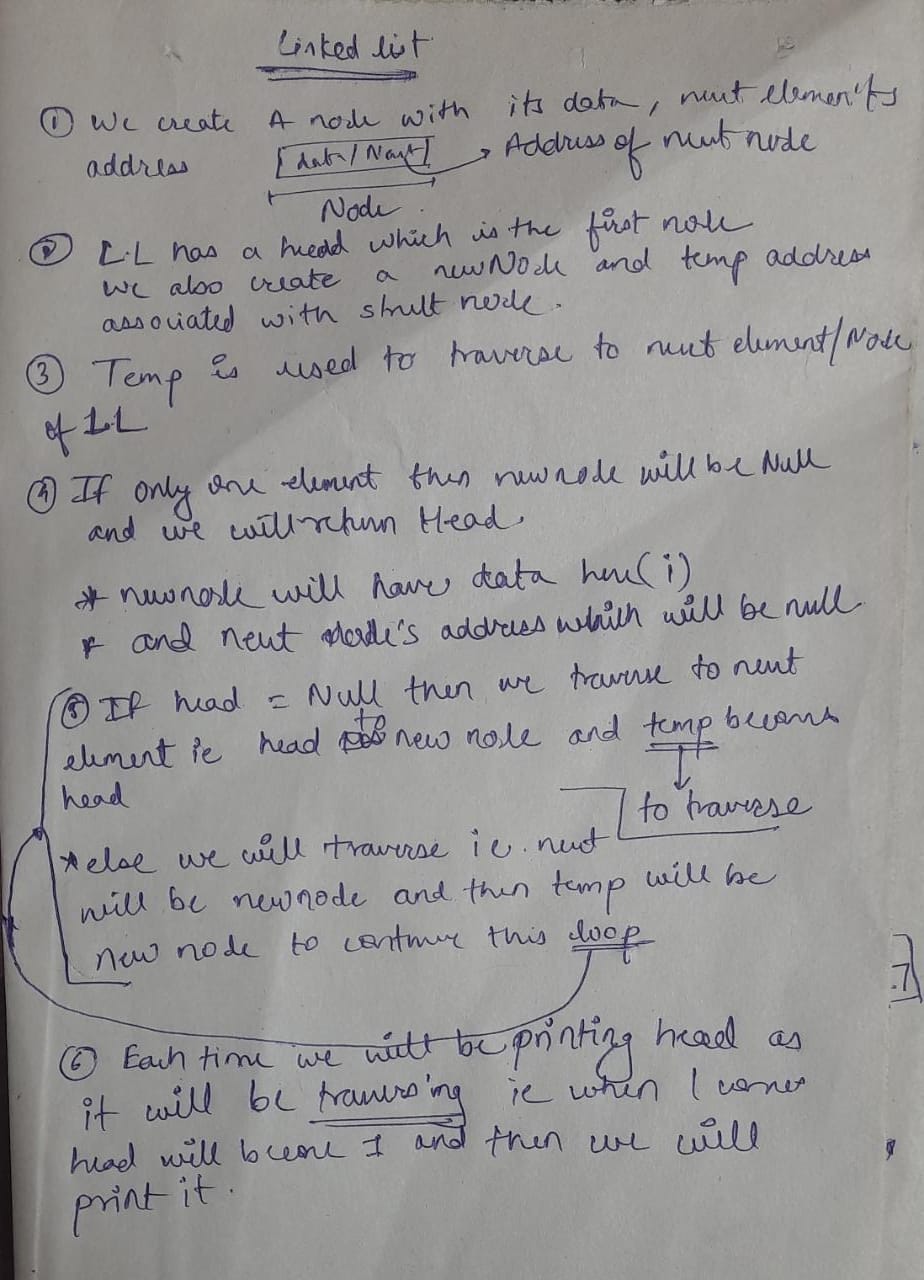 Linked list
① We create A node with its data, next element's
address [data/Next] → Address of next node
Node
② L.L has a head which is the first node
We also create a newNode and temp address
associated with struct node.
③ Temp is used to traverse to next element/Node
of L.L
④ If only one element then newnode will be Null
and we will return Head.
* newnode will have data here (i)
* and next node's address which will be null.
⑤ If head = Null then we traverse to next
element ie head to new node and temp becoms
head
to traverse
* else we will traverse ie. next
will be newnode and then temp will be
new node to continue this loop
⑥ Each time we will be printing head as
it will be traversing ie when 1 comes
head will become 1 and then we will
print it.